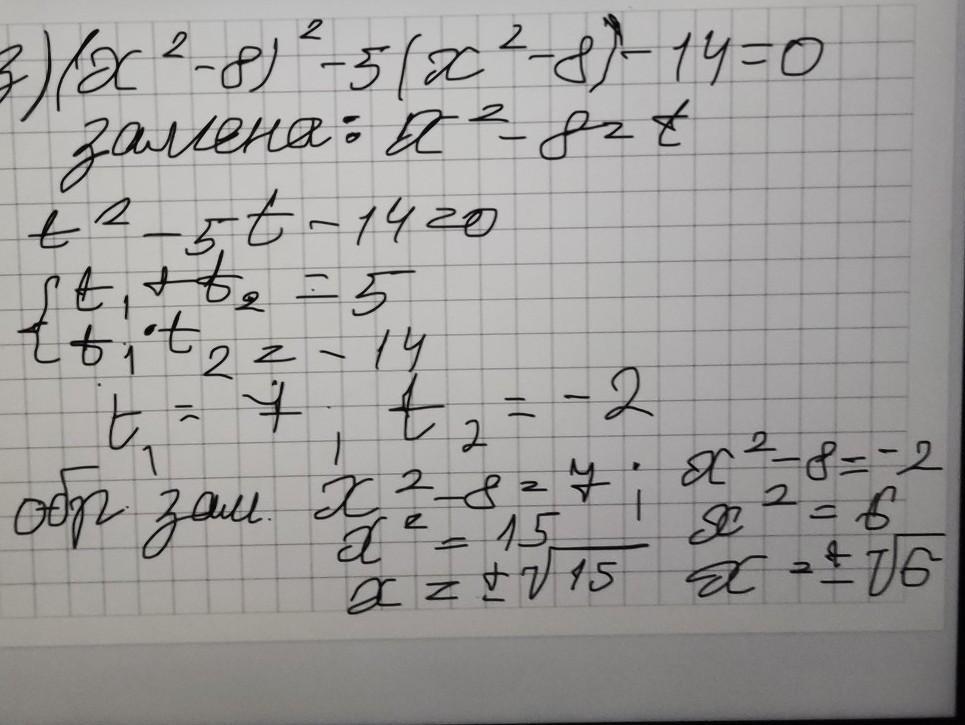 3) (x² - 8)² - 5(x² - 8) - 14 = 0
замена: x² - 8 = t
t² - 5t - 14 = 0
{ t₁ + t₂ = 5
t₁ · t₂ = - 14
t₁ = 7, t₂ = - 2
обр. зам. x² - 8 = 7 ; x² - 8 = - 2
x² = 15 x² = 6
x = ±√15 x = ±√6